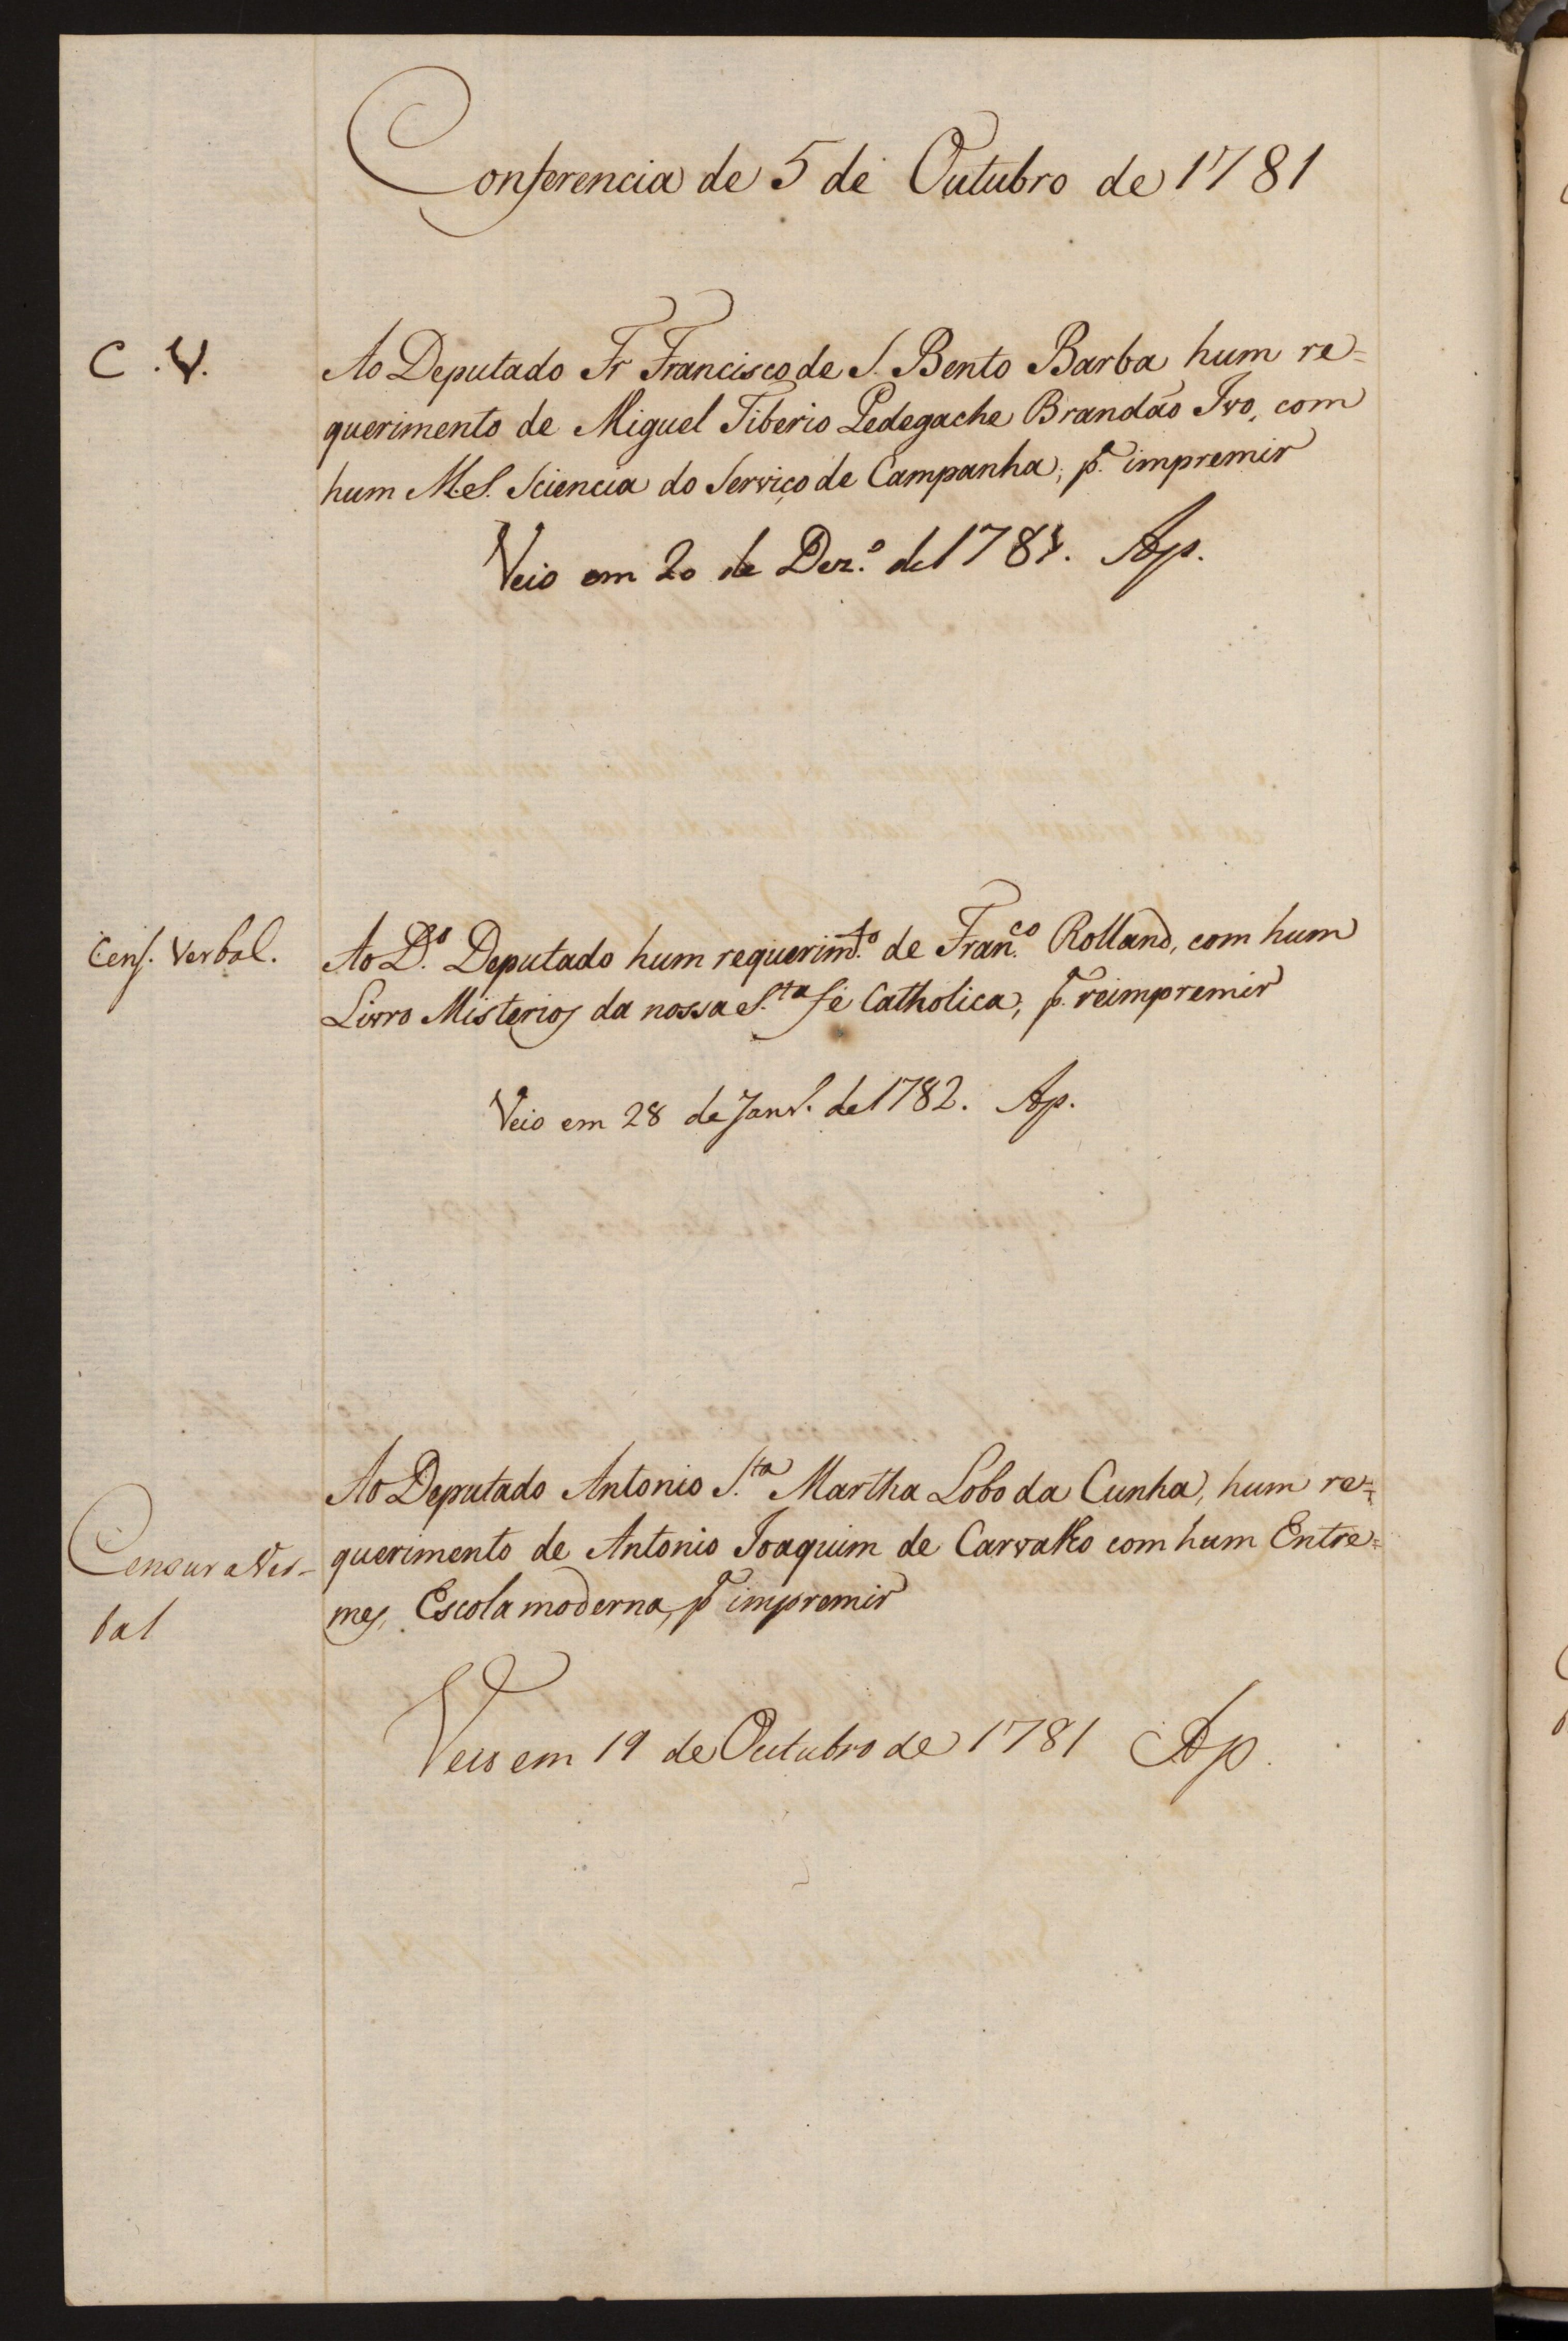 Conferencia de 5 de Outubro de 1781
C. V.
Ao Deputado Fr Francisco de S. Bento Barba hum re=
querimento de Miguel Tiberio Pedegache Brandão Ivo, com
hum M.S. Sciencia do Serviço de Campanha, pª. impremir
Veio em 20 de Dez.º de 1781. Ap.
Cens. Verbal.
Ao D.º Deputado hum requerim.to de Fran.co Rolland, com hum
Livro Misterios da nossa S.ta fé Catholica, pª. reimpremir
Veio em 28 de Janr.º de 1782. Ap.
Ao Deputado Antonio S.ta Martha Lobo da Cunha, hum re=
Censura Ver-
querimento de Antonio Joaquim de Carvalho com hum Entre=
bal
mes, Escola moderna, pª impremir
Veio em 19 de Outubro de 1781 Ap.